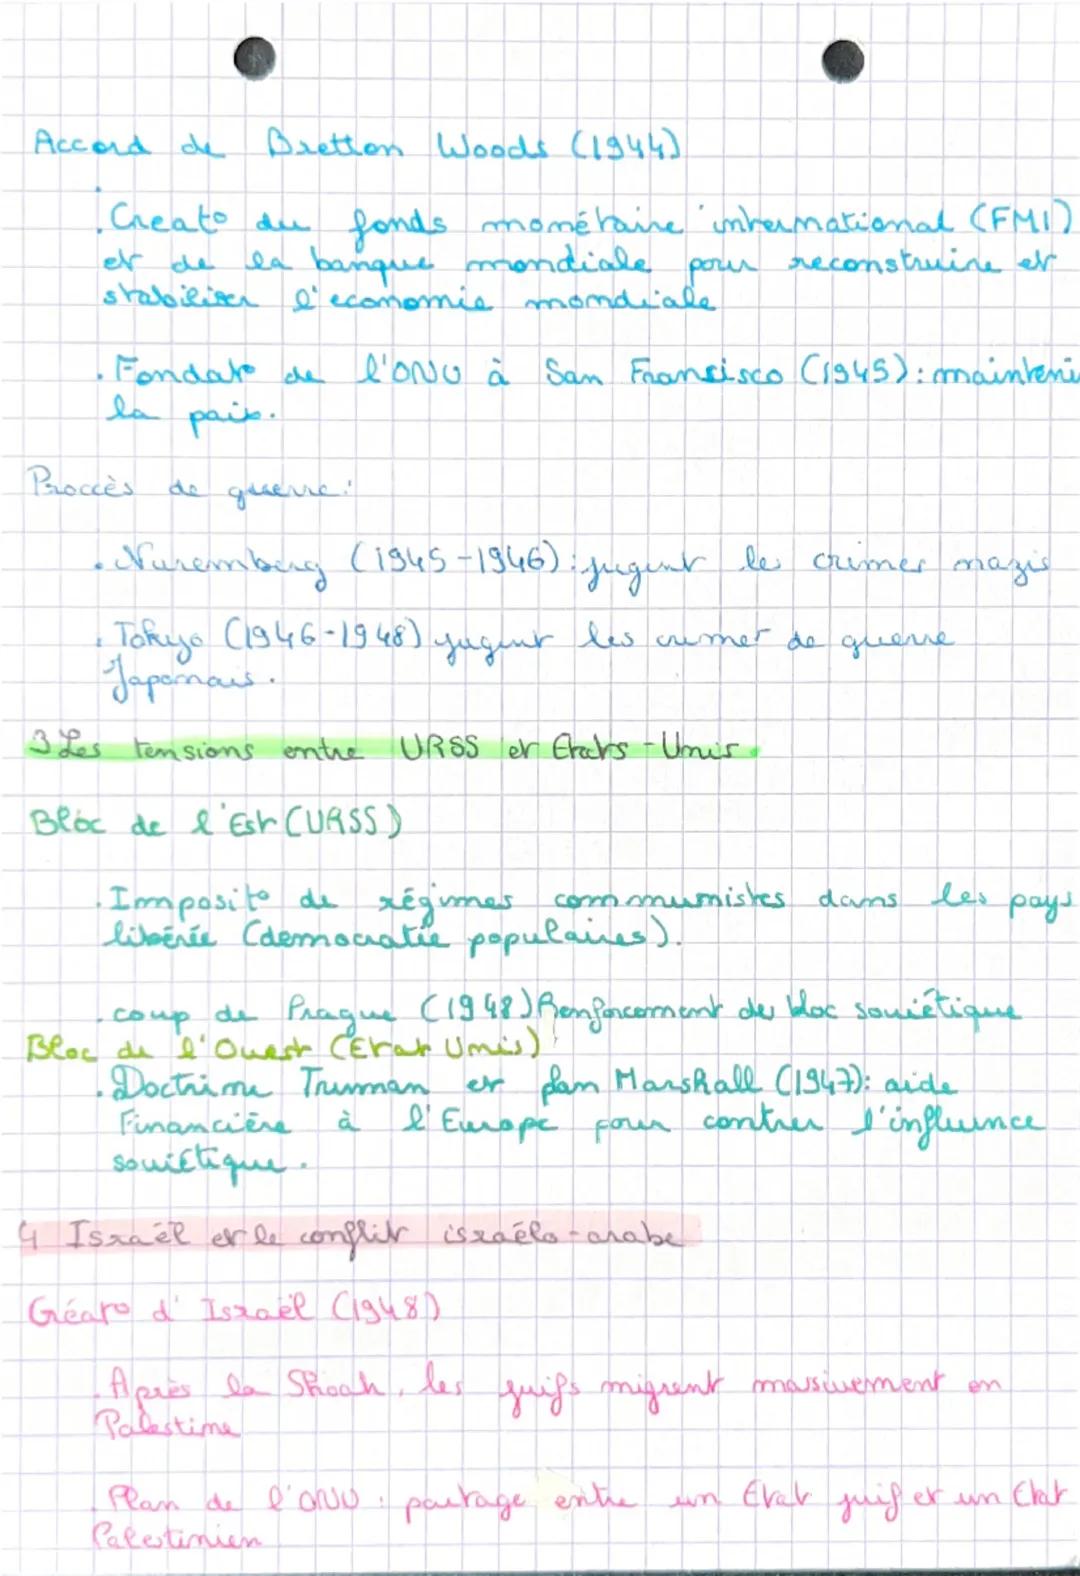 Accord de Bretton Woods (1944)
. Creat° du fonds monétaire international (FMI)
et de la banque mondiale pour reconstruire et
stabiliser l'economie mondiale
. Fondat° de l'ONU à San Fransisco (1945): mainteni
la paix.
Proccès de guerre:
. Nuremberg (1945-1946): jugent les crimes nazis
. Tokyo (1946-1948) jugent les crimes de guerre
Japonais.
3 Les tensions entre URSS et Etats-Unis.
Bloc de l'Est (URSS)
. Imposit° de régimes communistes dans les pays
libérée (democratie populaires).
. coup de Prague (1948) Renforcement du bloc soviétique
Bloc de l'Ouest (Etat Unis)
. Doctrine Truman et plan Marshall (1947): aide
Financière à l'Europe pour contrer l'influence
soviétique.
4 Israël et le conflit israélo-arabe
Créat° d'Israël (1948)
. Après la Shoah, les juifs migrent massivement en
Palestine
. Plan de l'ONU : partage entre un Etat juif et un Etat
Palestinien